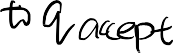 to 9 accept